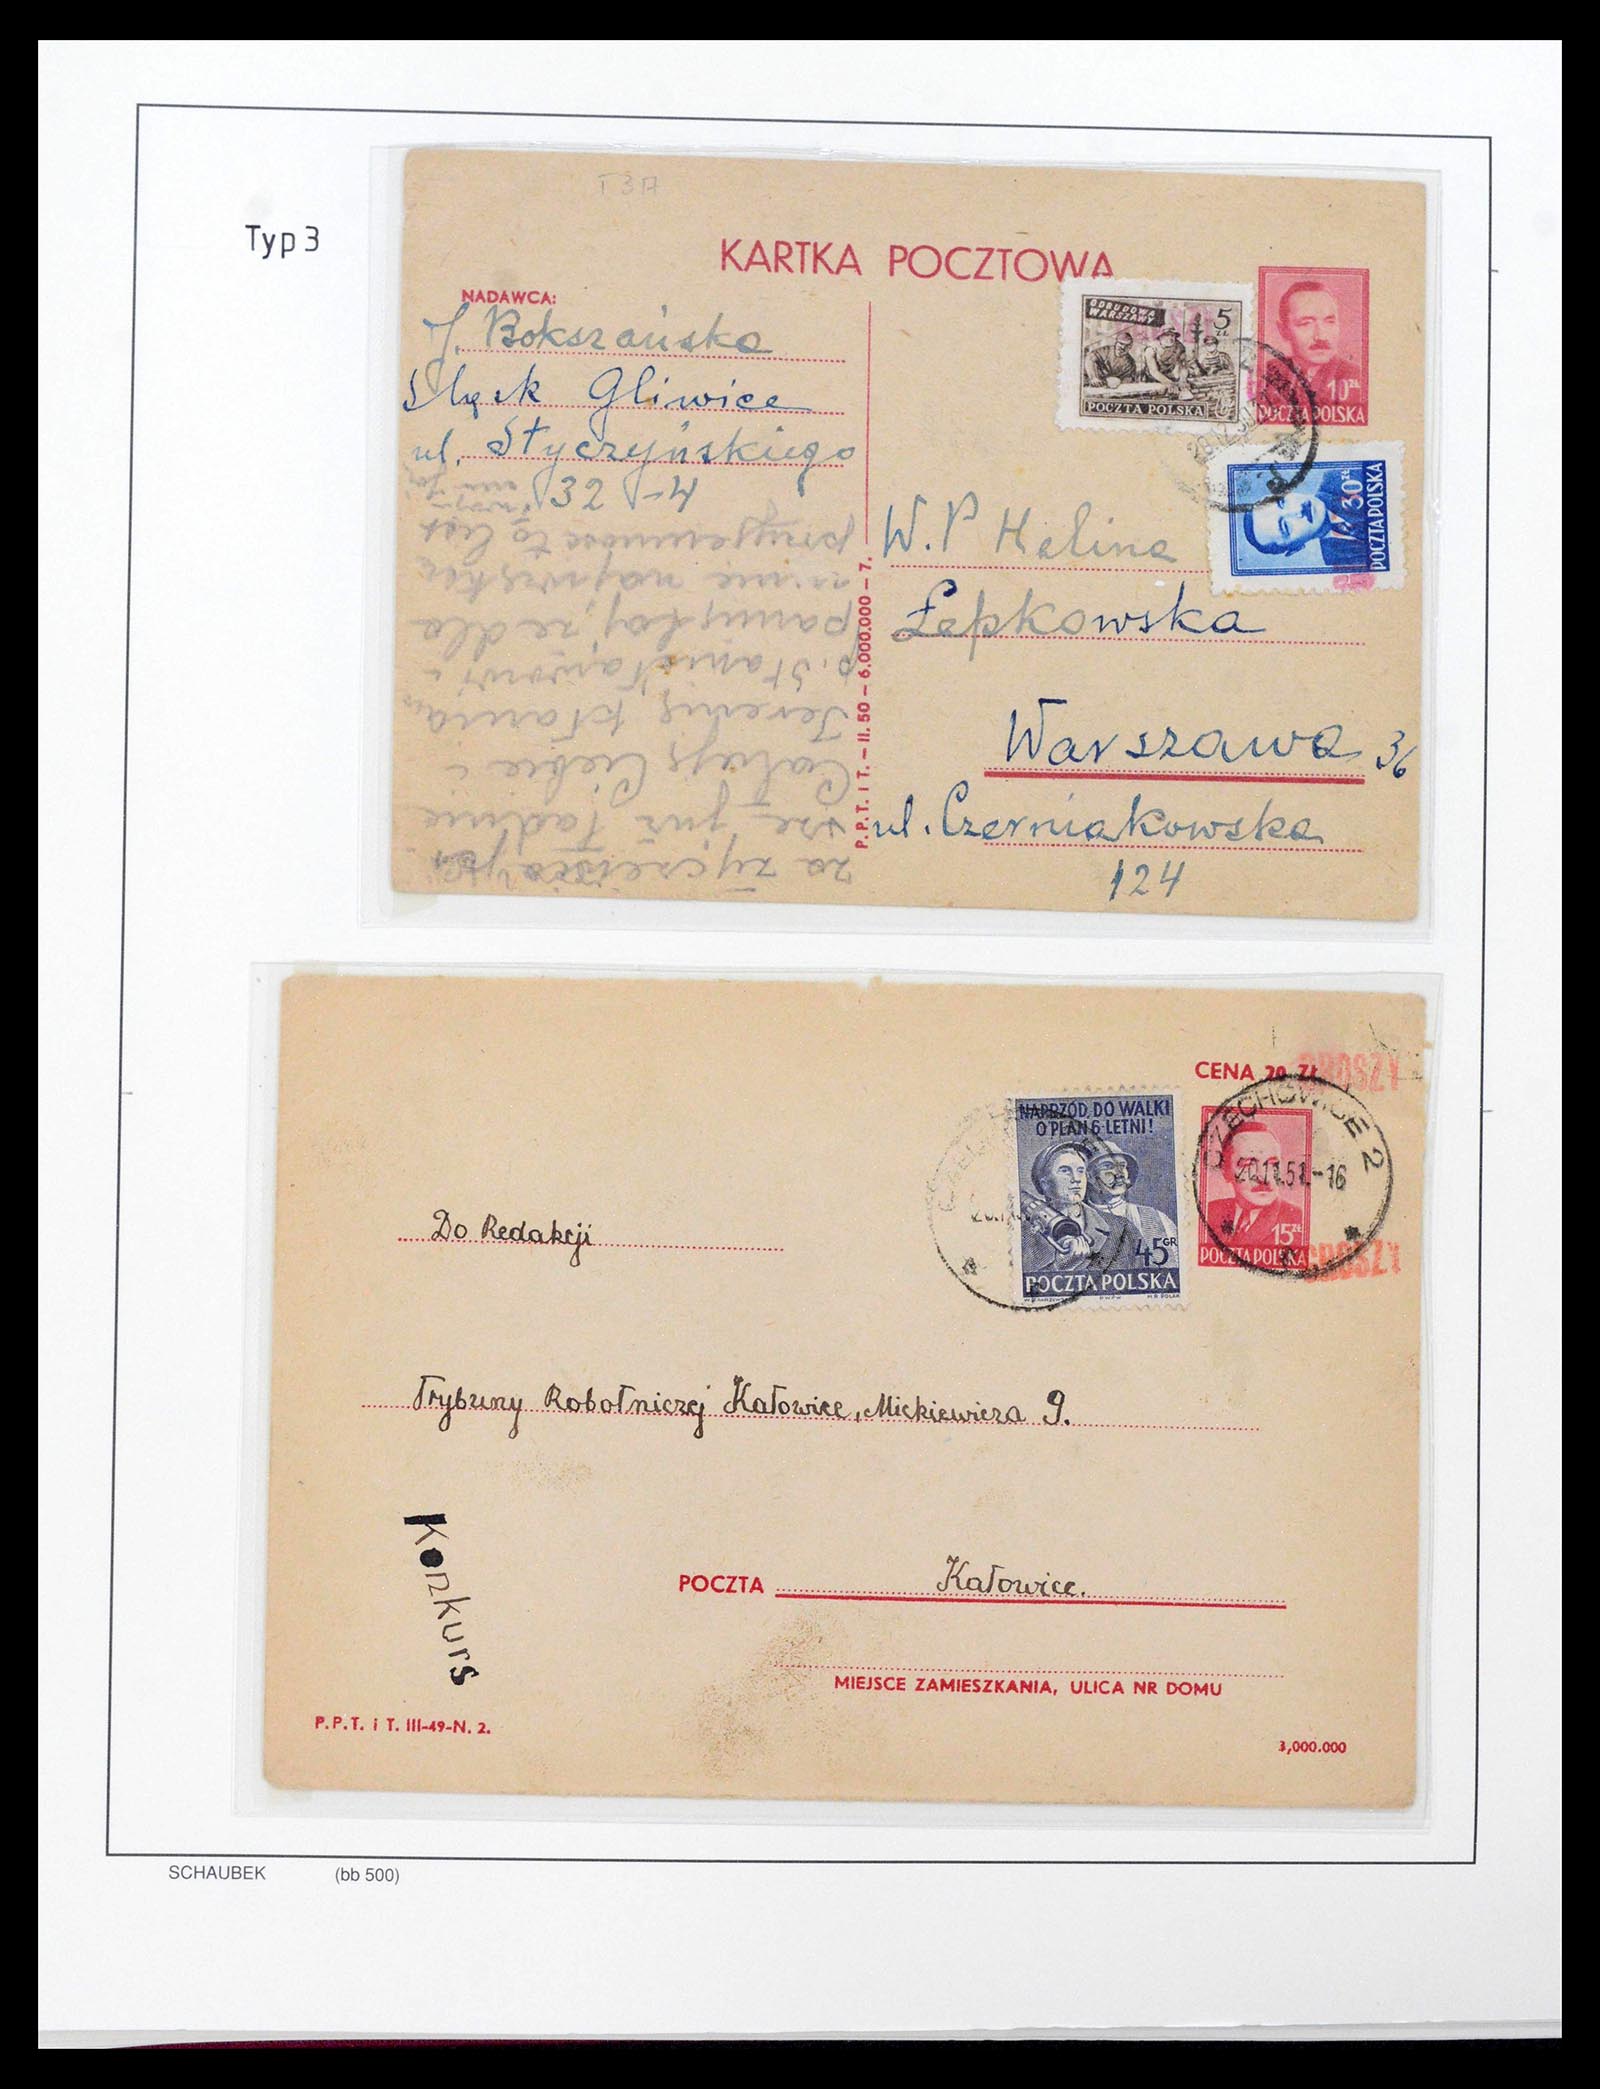 Typ 3
T 3A
KARTKA POCZTOWA
NADAWCA:
J. Bokszańska
Śląsk Gliwice
ul. Styczyńskiego
32 - 4
ODBUDOWA
WARSZAWY
5
ZŁ
POCZTA POLSKA
10 ZŁ
POCZTA POLSKA
30 ZŁ
POCZTA POLSKA
W.P Halina
Łepkowska
Warszawa 36
ul. Czerniakowska
124
P.P.T. i T. — II. 50 — 6.000.000 — 7.
za życzenia
już
Całuję Ciebie i
p. Stanisławowi -
pamiętaj, że dla
mnie największa
przyjemność to list
CENA 20 ZŁ
GROSZY
NAPRZÓD, DO WALKI
O PLAN 6-LETNI!
45 GR
POCZTA POLSKA
CZECHOWICE 2
20.11.51.-16
15 ZŁ
POCZTA POLSKA
GROSZY
Do Redakcji
Trybuny Robotniczej Katowice, Mickiewicza 9.
Konkurs
POCZTA Katowice.
MIEJSCE ZAMIESZKANIA, ULICA NR DOMU
P.P.T. i T. III-49-N. 2.
3,000.000
SCHAUBEK (bb 500)